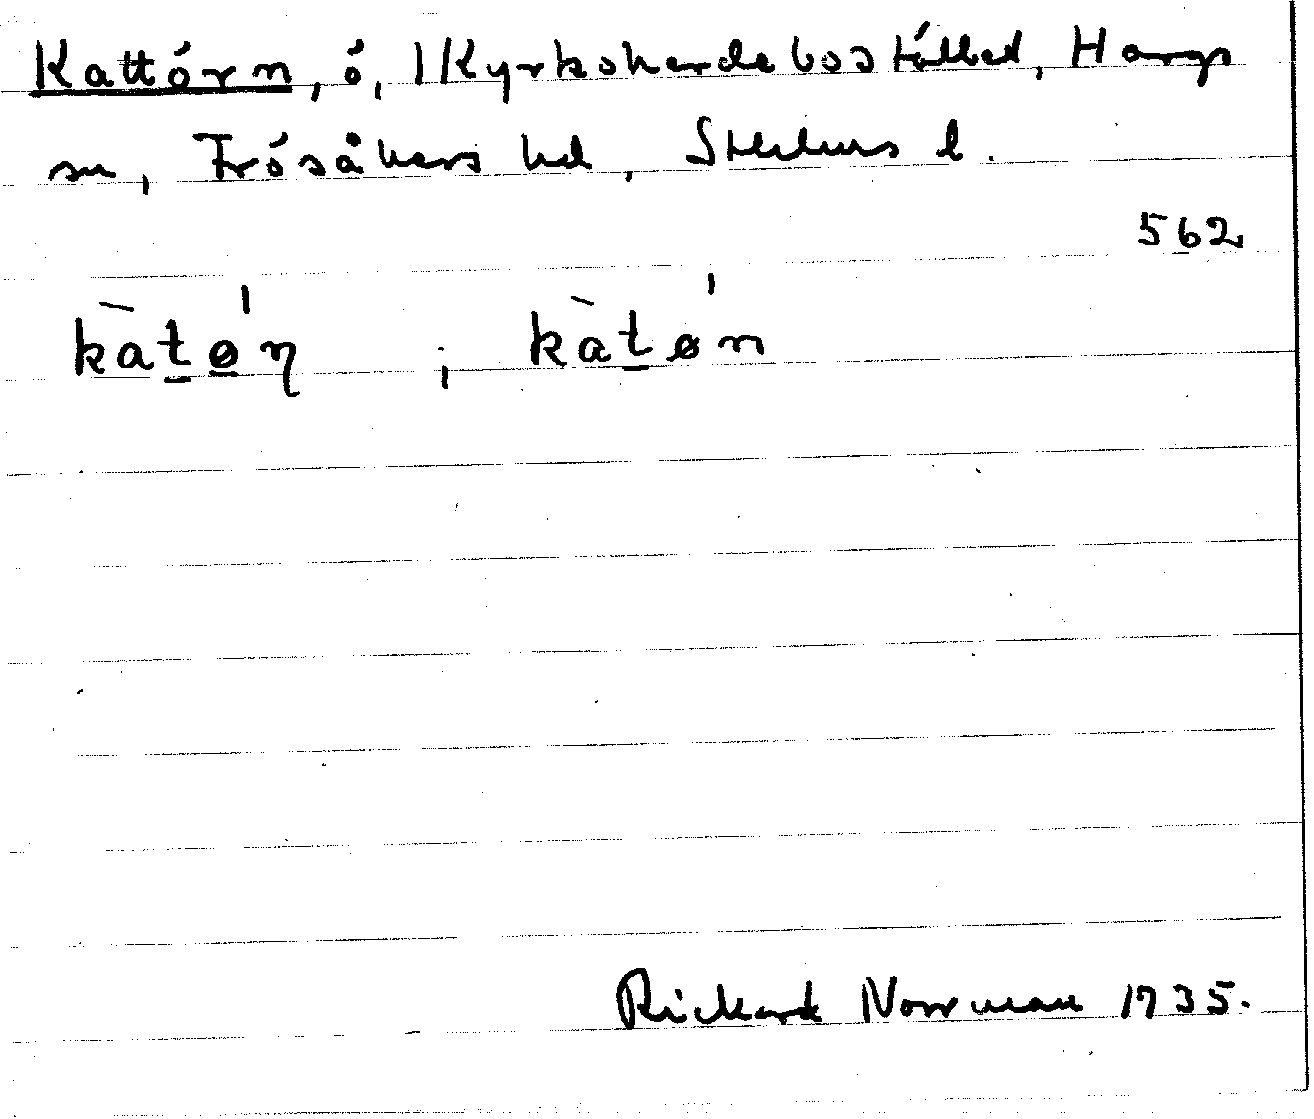 Kattörn, ö, Kyrkoherdebostället, Hargs
sn, Frösåkers hd, Sthlms l.
562
kàt̲ǿ̲ꞃ ; kàt̲ǿn
Rickard Norrman 1935.